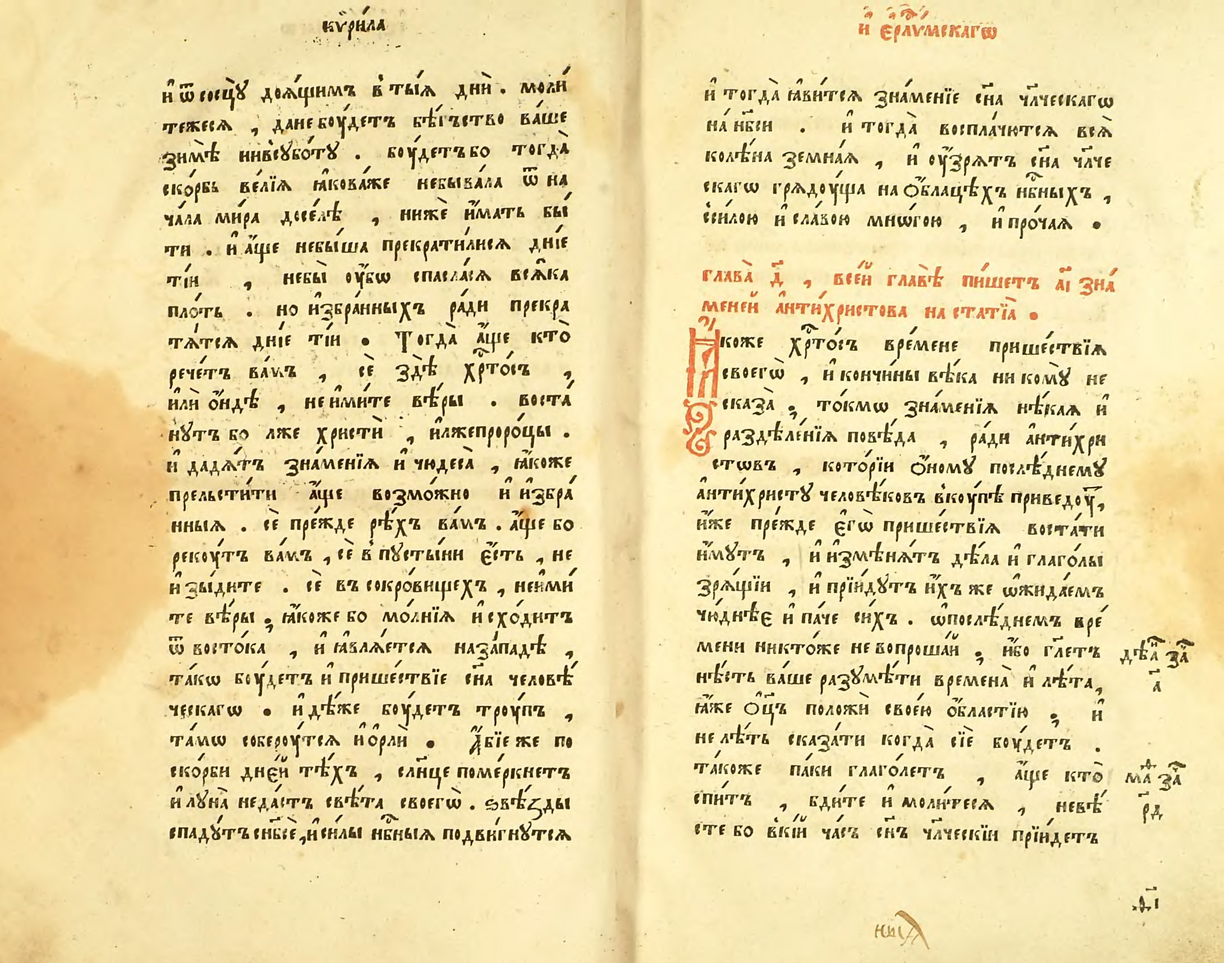 кѷри́ла
и҆ ѿ сосцꙋ̀ доѧ́щимъ в҆ ты́ѧ дни̑ . моли́
тежесѧ , дане боу́детъ бѣ́гъство ва́ше
зимѣ̀ нивсꙋбо́тꙋ . боу́детъбо тогда̀
ско́рбь ве́лїѧ ꙗ҆кова́же небыва́ла ѿ на
ча́ла ми́ра досе́лѣ , нижѐ и҆́мать бы́
ти . и҆ а҆́ще небы́ша прекрати́лисѧ дні́е
ті́и , небы̀ оу҆́бѡ спасла́сѧ всѧ́ка
пло́ть . но и҆збра́нныхъ ра́ди прекра
тѧ́тсѧ дні́е ті́и . Тогда̀ а҆́ще кто̀
рече́тъ ва́мъ , сѐ здѣ̀ хрⷭ҇то́съ ,
и҆лѝ ѻ҆́ндѣ , неими́те вѣ́ры . воста́
нꙋтъ бо лже христѝ , и҆лжепроро́цы .
и҆ дадѧ́тъ зна́менїѧ и҆ чюдеса̀ , ꙗ҆коже
прельсти́ти а҆́ще возмо́жно и҆ и҆збра́
нныѧ . сѐ пре́жде рѣ́хъ ва́мъ . а҆́ще бо
рекоу́тъ ва́мъ , сѐ в҆ пꙋсты́ни є҆́сть , не
и҆зы́дите . сѐ въ сокро́вищехъ , неими́
те вѣ́ры , ꙗ҆́коже бо мо́лнїѧ и҆сходитъ
ѿ восто́ка , и҆ ꙗ҆влѧ́етсѧ наза́падѣ ,
та́кѡ боу́детъ и҆ прише́ствїе сн҃а человѣ́
ческагѡ . и҆дѣ́же боу́детъ троу́пъ ,
та́мѡ соберꙋ́тсѧ и҆ орлѝ . А҆́бїе же по
ско́рби дне́й тѣ́хъ , сл҃нце поме́ркнетъ
и҆ лꙋна̀ неда́стъ свѣ́та своегѡ̀ . ѕвѣ́зды
спадꙋ́тъ снб҃сѐ, и҆ си́лы нбⷭ҇ныѧ подви́гнꙋтсѧ
и҆ є҆рⷭ҇лимскагѡ
и҆ тогда̀ ꙗ҆ви́тсѧ зна́менїе сн҃а чл҃ческагѡ
на нб҃си . и҆ тогда̀ воспла́чютсѧ всѧ̀
колѣ́на земна́ѧ , и҆ оу҆́зрѧтъ сн҃а чл҃че
скагѡ грѧдоу́ща на ѻ҆́блацѣхъ нбⷭ҇ныхъ ,
сси́лою и҆ сла́вою мно́гою , и҆ про́чаѧ .
глава̀ д҃ , всей главѣ̀ пи́шетъ а҃і зна́
меней а҆нти́христова на статїѧ̀ .
Ꙗ҆коже хрⷭ҇то́съ вре́мене прише́ствїѧ
своегѡ̀ , и҆ кончи́ны вѣ́ка ни комꙋ̀ не
сказа̀ , то́кмѡ зна́менїѧ нѣ́каѧ и҆
раздѣле́нїѧ повѣ́да , ра́ди а҆нти́хри
стѡвъ , кото́рїи ѻ҆́номꙋ послѣ́днемꙋ
а҆нти́христꙋ человѣ́ковъ вкоу́пѣ приведоу́тъ,
и҆́же пре́жде є҆гѡ̀ прише́ствїѧ воста́ти
и҆́мꙋтъ , и҆ и҆змѣ́нѧтъ дѣ́ла и҆ глаго́лы
зрѧ́щїи , и҆ прїи́дꙋтъ и҆́хъ же ѡ҆жида́емъ
чюднѣ́е и҆ па́че си́хъ . ѡ҆послѣ́днемъ вре́
мени никто́же не вопроша́й , и҆́бо гл҃етъ
нѣ́сть ва́ше разꙋмѣ́ти времена̀ и҆ лѣ́та,
ꙗ҆́же ѻ҆ц҃ъ положѝ свое́ю ѻ҆́бластїю , и҆
не лѣ́ть сказа́ти когда̀ сїѐ боу́детъ .
та́коже па́ки глаго́летъ , а҆́ще кто̀
спи́тъ , бди́те и҆ моли́тесѧ , невѣ́
сте бо в҆кі́й ча́съ сн҃ъ чл҃ческїи прїи́детъ
дѣѧ҇ за҇
а҃
маⷴ за҇
рд҃